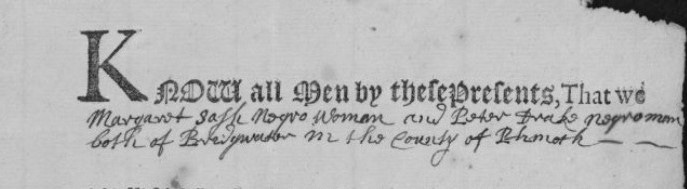 KNOW all Men by theſe Preſents, That we
Margaret Saſh Negro Woman and Peter Drake negro man
both of Bridgwater in the County of Plimoth